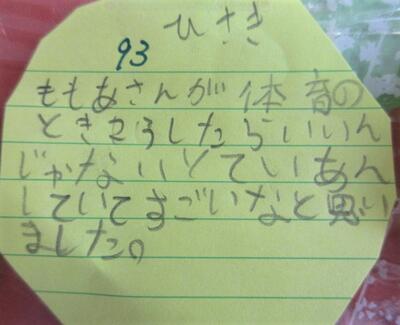 ひさき
93
ももあさんが体育の
ときこうしたらいいん
じゃないってていあん
していてすごいなと思い
ました。